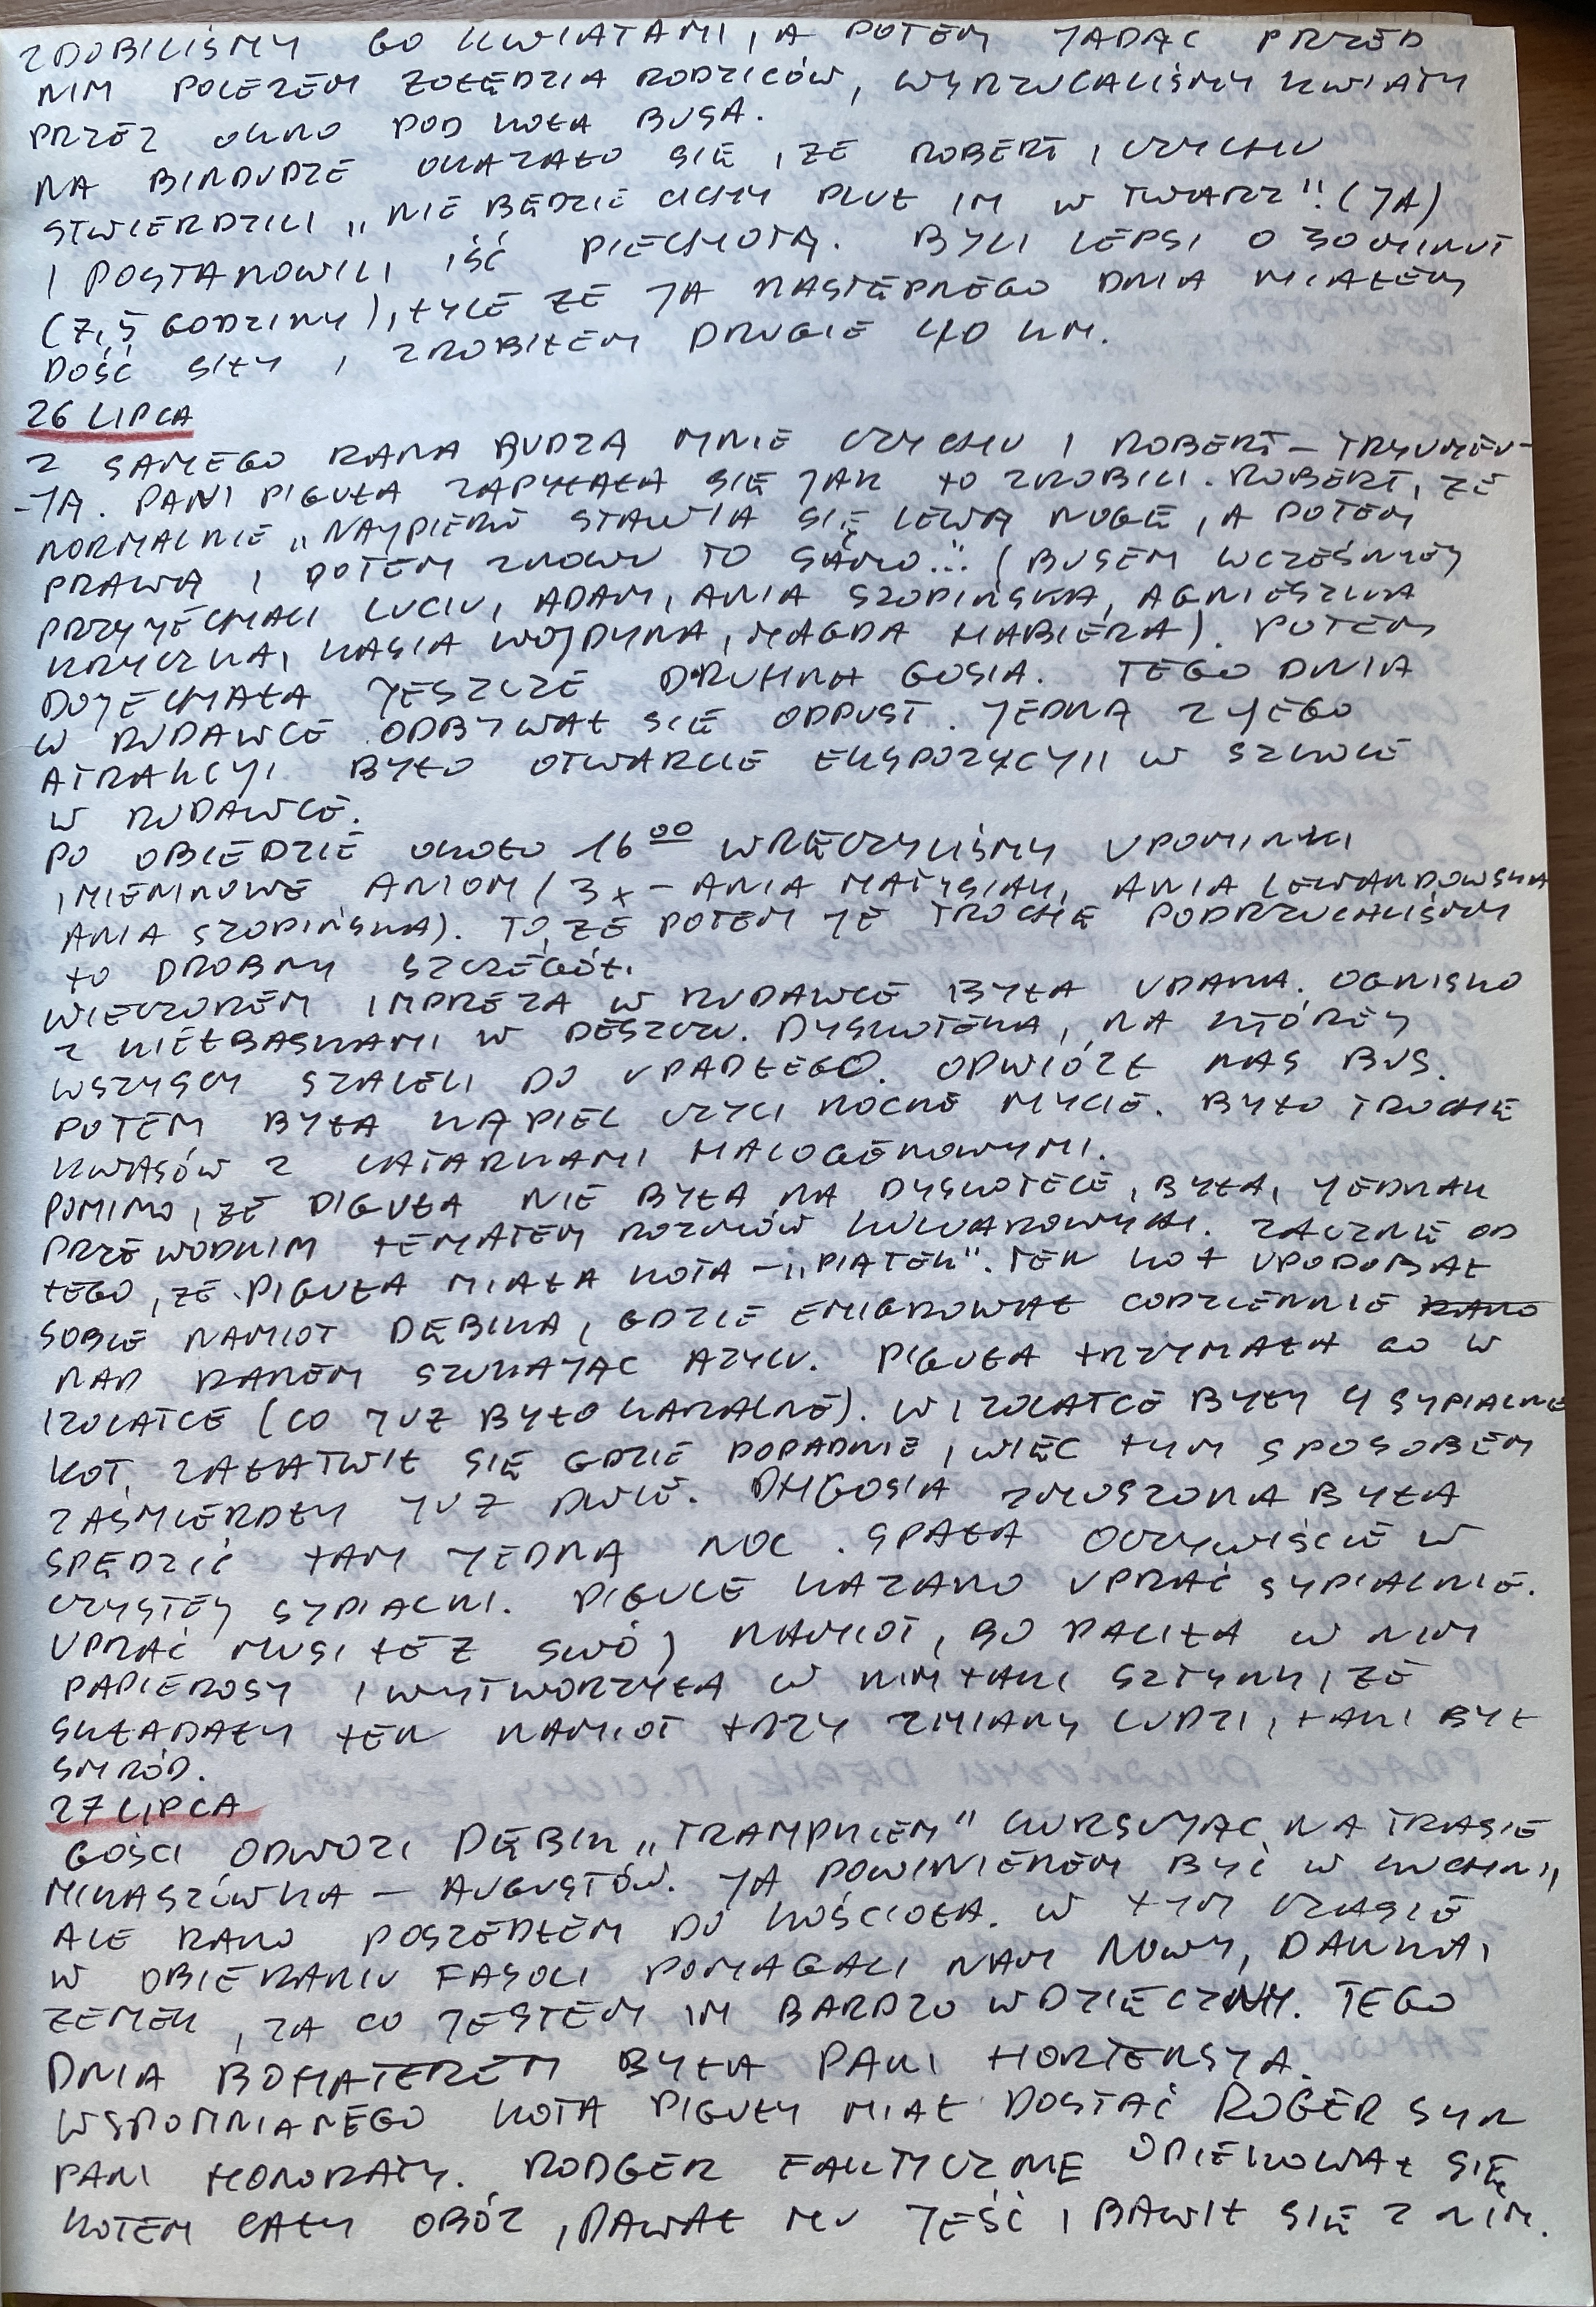 ZDOBILIŚMY GO KWIATAMI, A POTEM JADĄC PRZED
NIM POLEZEM ZOŁĘDZIA RODZICÓW, WYRZUCALIŚMY KWIATY
PRZEZ OKNO POD KOŁA BUSA.
NA BINDUDZE OKAZAŁO SIĘ, ŻE ROBERT, CZYCHU
STWIERDZILI „NIE BĘDZIE CICHY PLUŁ IM W TWARZ"! (JA)
I POSTANOWILI IŚĆ PIECHOTĄ. BYLI LEPSI O 30 MINUT
(7,5 GODZINY), TYLE ŻE JA NASTĘPNEGO DNIA MIAŁEM
DOŚĆ SIŁY I ZROBIŁEM DRUGIE 40 KM.
26 LIPCA
Z SAMEGO RANA BUDZĄ MNIE CZYCHU I ROBERT – TRYUMFU-
-JĄ. PANI PIGUŁA ZAPYTAŁA SIĘ JAK TO ZROBILI. ROBERT, ŻE
NORMALNIE „NAJPIERW STAWIA SIĘ LEWĄ NOGĘ, A POTEM
PRAWĄ I POTEM ZNOWU TO SAMO..." (BUSEM WCZEŚNIEJ
PRZYJECHALI LUCIU, ADAM, ANIA SZOPIŃSKA, AGNIESZKA
KRYCZKA, KASIA WOJDYNA, MAGDA HABIERA). POTEM
DOJECHAŁA JESZCZE DRUHNA GOSIA. TEGO DNIA
W RUDAWCE ODBYWAŁ SIĘ ODPUST. JEDNĄ Z JEGO
ATRAKCJI BYŁO OTWARCIE EKSPOZYCJI W SZKOLE
W RUDAWCE.
PO OBIEDZIE OKOŁO 16 00 WRĘCZYLIŚMY UPOMINKI
IMIENINOWE ANIOM (3x – ANIA MATYSIAK, ANIA LEWANDOWSKA
ANIA SZOPIŃSKA). TO, ŻE POTEM JE TROCHĘ PODRZUCALIŚMY
TO DROBNY SZCZEGÓŁ.
WIECZOREM IMPREZA W RUDAWCE BYŁA UDANA. OGNISKO
Z KIEŁBASKAMI W DESZCZU. DYSKOTEKA, NA KTÓREJ
WSZYSCY SZALELI DO UPADŁEGO. ODWIÓZŁ NAS BUS.
POTEM BYŁA KĄPIEL CZYLI NOCNE MYCIE. BYŁO TROCHĘ
KWASÓW Z LATARKAMI HALOGENOWYMI.
POMIMO, ŻE PIGUŁA NIE BYŁA NA DYSKOTECE, BYŁA, JEDNAK
PRZEWODNIM TEMATEM ROZMÓW KULUAROWYCH. ZACZNĘ OD
TEGO, ŻE PIGUŁA MIAŁA KOTA – „PIĄTEK". TEN KOT UPODOBAŁ
SOBIE NAMIOT DĘBIKA, GDZIE EMIGROWAŁ CODZIENNIE RANO
NAD RANEM SZUKAJĄC AZYLU. PIGUŁA TRZYMAŁA GO W
IZOLATCE (CO JUŻ BYŁO KARALNE). W IZOLATCE BYŁY 4 SYPIALNIE
KOT ZAŁATWIŁ SIĘ GDZIE POPADNIE, WIĘC TYM SPOSOBEM
ZAŚMIERDŁY JUŻ DWIE. DH GOSIA ZMUSZONA BYŁA
SPĘDZIĆ TAM JEDNĄ NOC. SPAŁA OCZYWIŚCIE W
CZYSTEJ SYPIALNI. PIGULE KAZANO UPRAĆ SYPIALNIE.
UPRAĆ MUSI TEŻ SWÓJ NAMIOT, BO PALIŁA W NIM
PAPIEROSY I WYTWORZYŁA W NIM TAKI SZTYNK, ŻE
SKŁADAŁY TEN NAMIOT TRZY ZMIANY LUDZI, TAKI BYŁ
SMRÓD.
27 LIPCA
GOŚCI ODWOZI DĘBIK „TRAMPKIEM" KURSUJĄC NA TRASIE
MIKASZÓWKA – AUGUSTÓW. JA POWINIENEM BYĆ W KUCHNI,
ALE RANO POSZEDŁEM DO KOŚCIOŁA. W TYM CZASIE
W OBIERANIU FASOLI POMAGALI NAM NOWY, DANKA,
ZEMEK, ZA CO JESTEM IM BARDZO WDZIĘCZNY. TEGO
DNIA BOHATEREM BYŁA PANI HORTENSJA.
WSPOMNIANEGO KOTA PIGUŁY MIAŁ DOSTAĆ ROGER SYN
PANI HONORATY. RODGER FAKTYCZNIE OPIEKOWAŁ SIĘ
KOTEM CAŁY OBÓZ, DAWAŁ MU JEŚĆ I BAWIŁ SIĘ Z NIM.